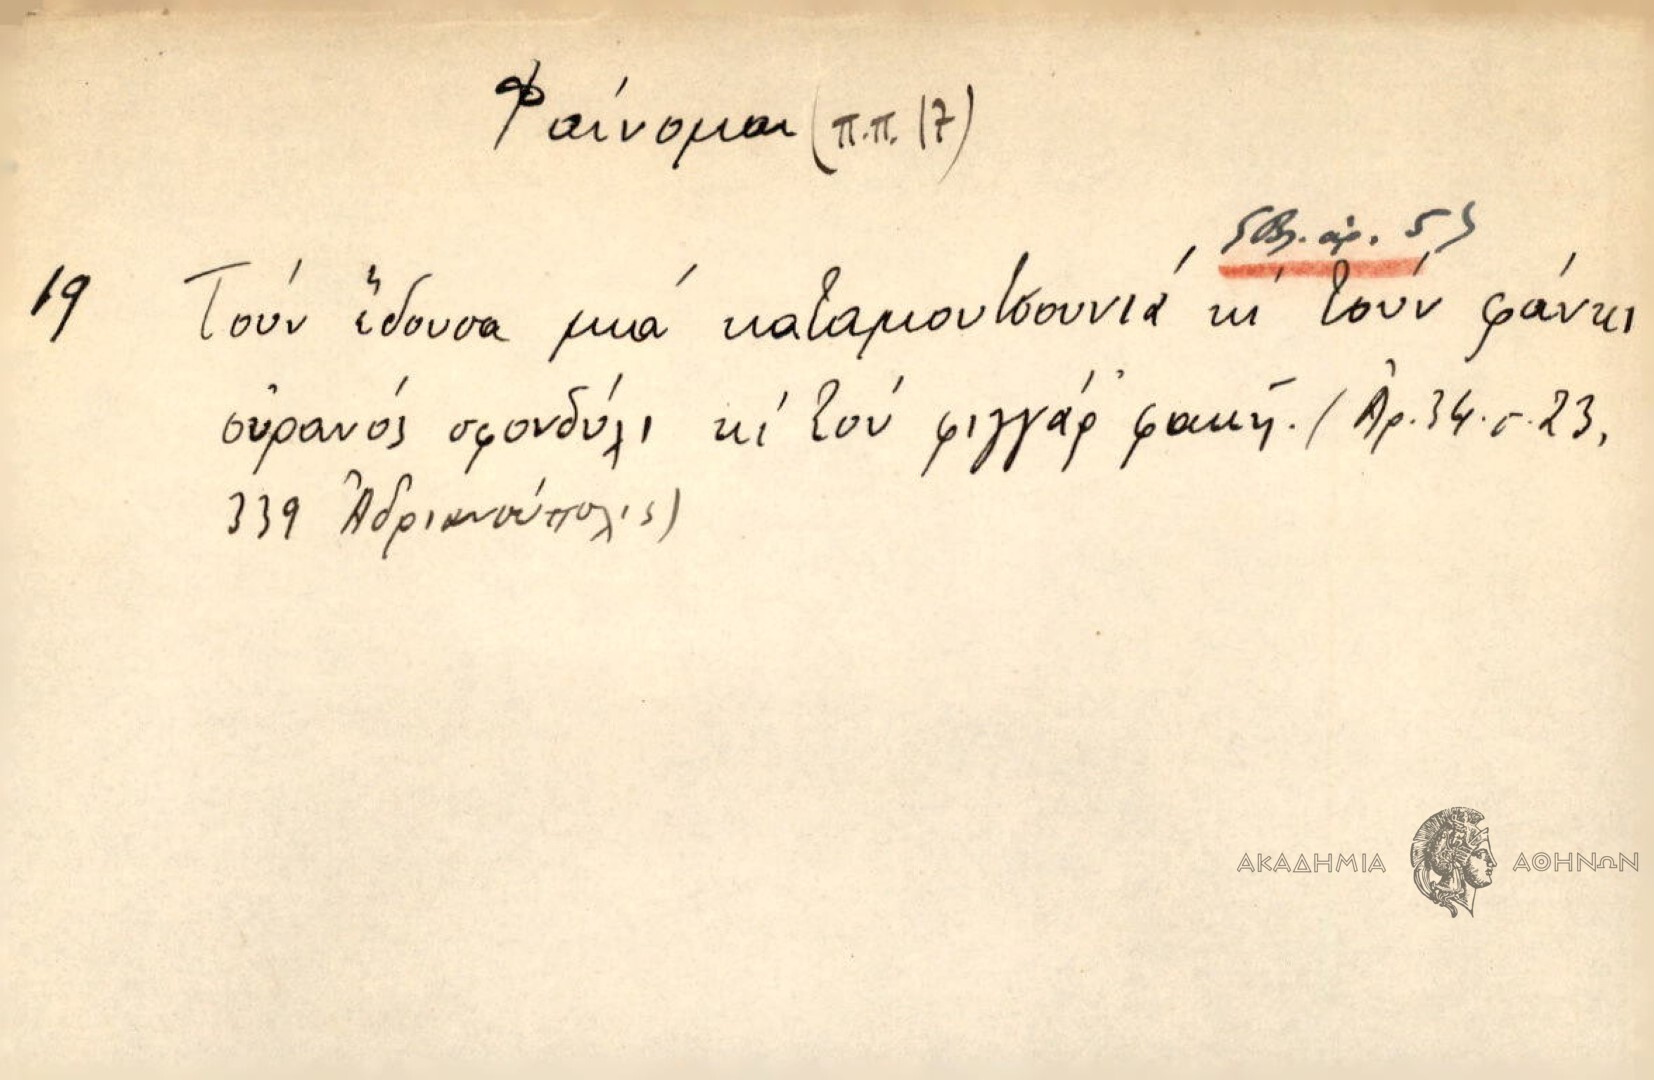 Φαίνομαι (π.π. 17)
{Βλ. ἀρ. 5}
19 Τούν ἔδουσα μιά καταμουτσουνιά κί τούν φάνκι
οὐρανός σφονδύλι κί τού φιγγάρ' φακή. (Ἀρ. 34. σ. 23,
339 Ἀδριανούπολις)
ΑΚΑΔΗΜΙΑ ΑΘΗΝΩΝ